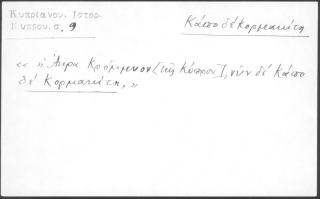 Κυπριανου. Ιστορ.
Κυπρου. σ. 9
Κάπο δέ κορμακίτη
« ἡ Ἄκρα Κρόμμυον [τῆς Κύπρου], νῦν δέ Κάπο
δέ Κορμακίτη, »